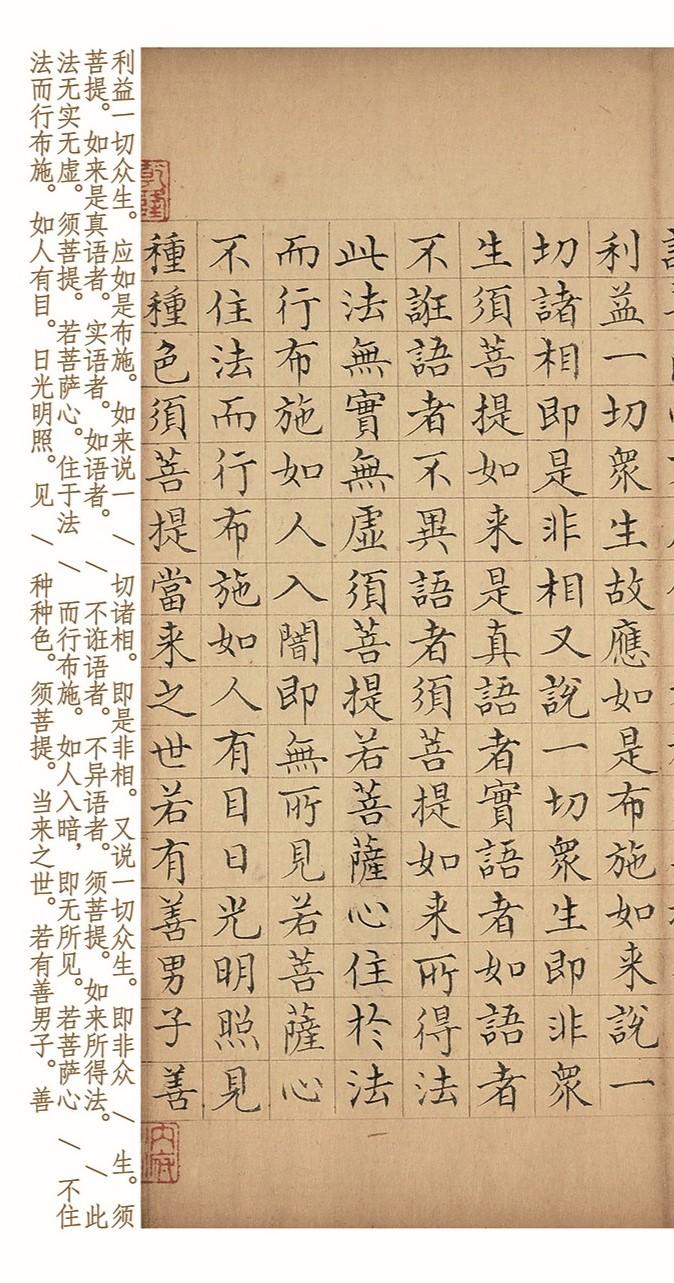 利益一切衆生故應如是布施如来說一
切諸相即是非相又說一切衆生即非衆
生須菩提如来是真語者實語者如語者
不誑語者不異語者須菩提如来所得法
此法無實無虛須菩提若菩薩心住於法
而行布施如人入闇即無所見若菩薩心
不住法而行布施如人有目日光明照見
種種色須菩提當来之世若有善男子善
利益一切众生。应如是布施。如来说一 / 切诸相。即是非相。又说一切众生。即非众 / 生。须
菩提。如来是真语者。实语者。如语者。 / 不诳语者。不异语者。须菩提。如来所得法。 / 此
法无实无虚。须菩提。若菩萨心。住于法 / 而行布施。如人入暗，即无所见。若菩萨心 / 不住
法而行布施。如人有目。日光明照。见 / 种种色。须菩提。当来之世。若有善男子。善